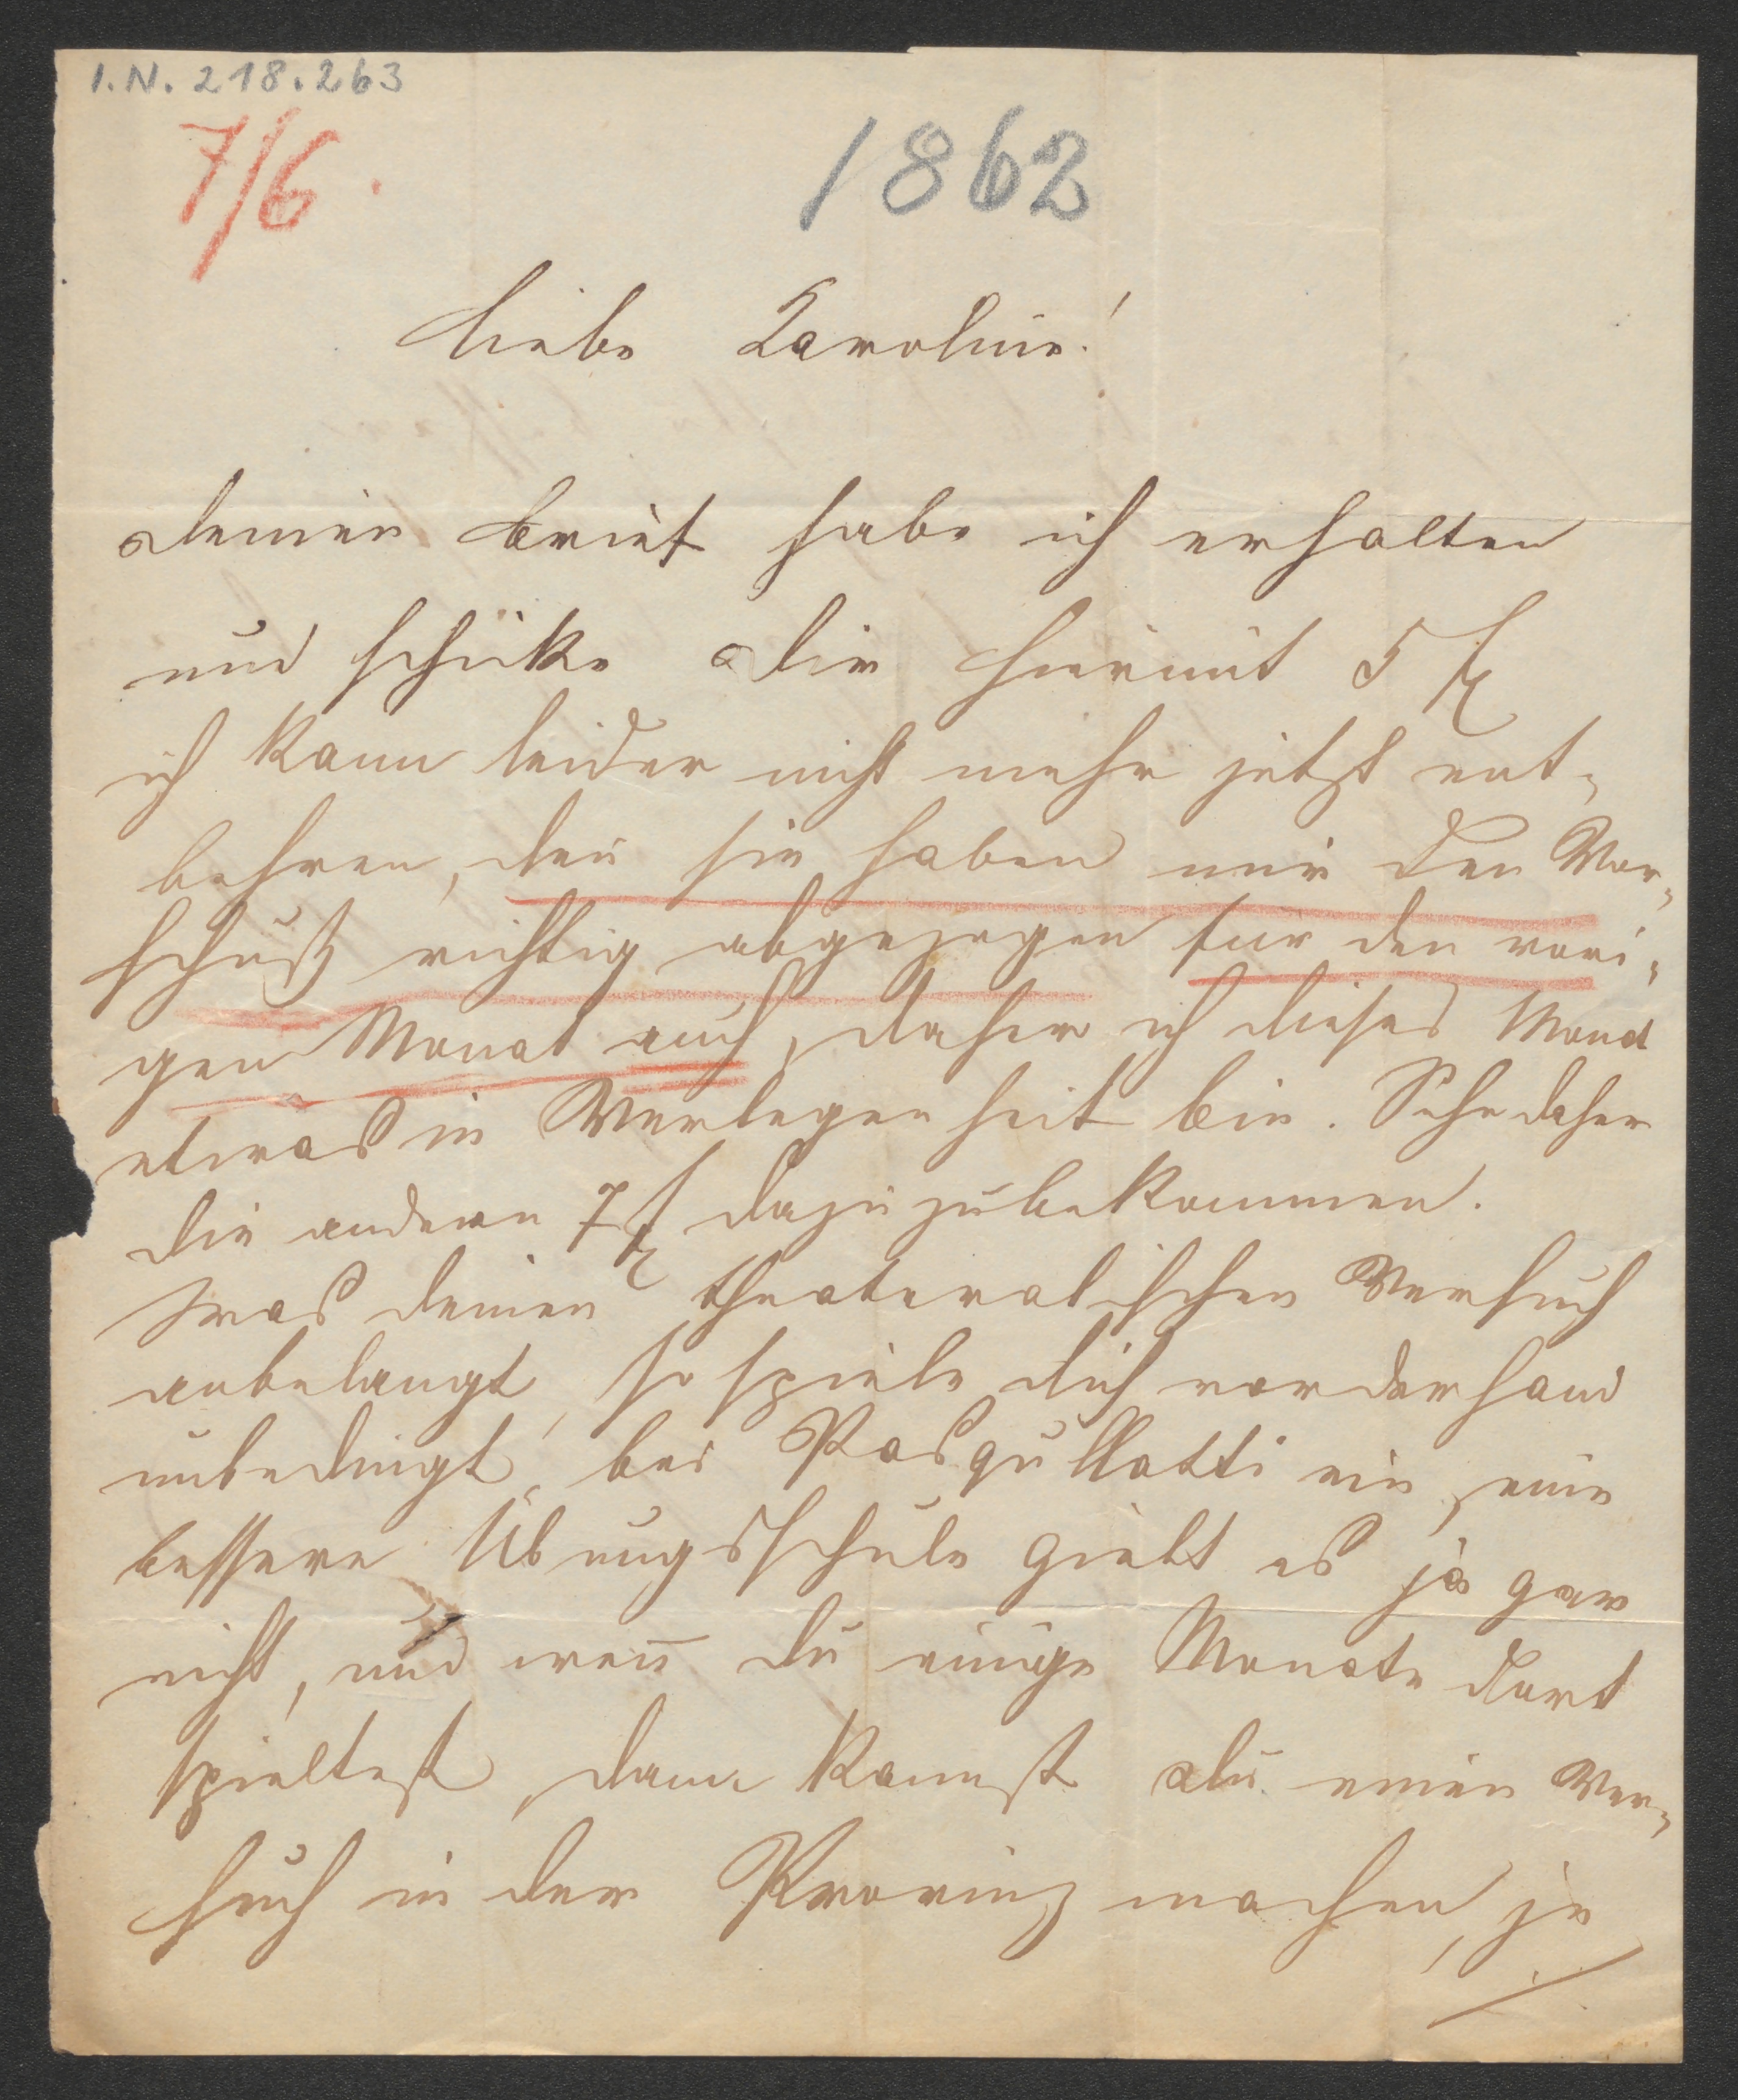 I.N. 218.263
7/6.
1862
Liebe Karoline!
Deinen Brief habe ich erhalten
und schicke Dir hiermit 5 f
ich kann leider nicht mehr jetzt ent-
behren, den sie haben mir den Vor-
schuß richtig abgezogen für den vori-
gen Monat auch, daher ich dieses Monat
etwas in Verlegenheit bin. Sehe daher
die andern 7 f dazu zubekommen.
Was deinen theateralischen Versuch
anbelangt, so spiele dich vorderhand
unbedingt, bei Pasqullatti ein, eine
bessere Übungsschule giebt es ja gar
nicht, und wen̄ du einige Monate dort
spieltest, dann kannst Du einen Ver-
such in der Provinz machen, je